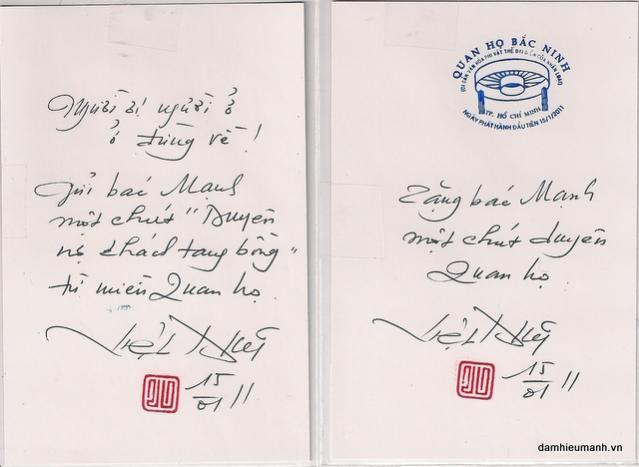 Người ơi người ở
ở đừng về!
Gửi bác Mạnh
một chút "Duyên
nợ khách tang bồng"
từ miền Quan họ.
15/01 11
QUAN HỌ BẮC NINH
TP. HỒ CHÍ MINH
NGÀY PHÁT HÀNH ĐẦU TIÊN 15/1/2011
Tặng bác Mạnh
một chút duyên
Quan họ
15/01 11
damhieumanh.vn